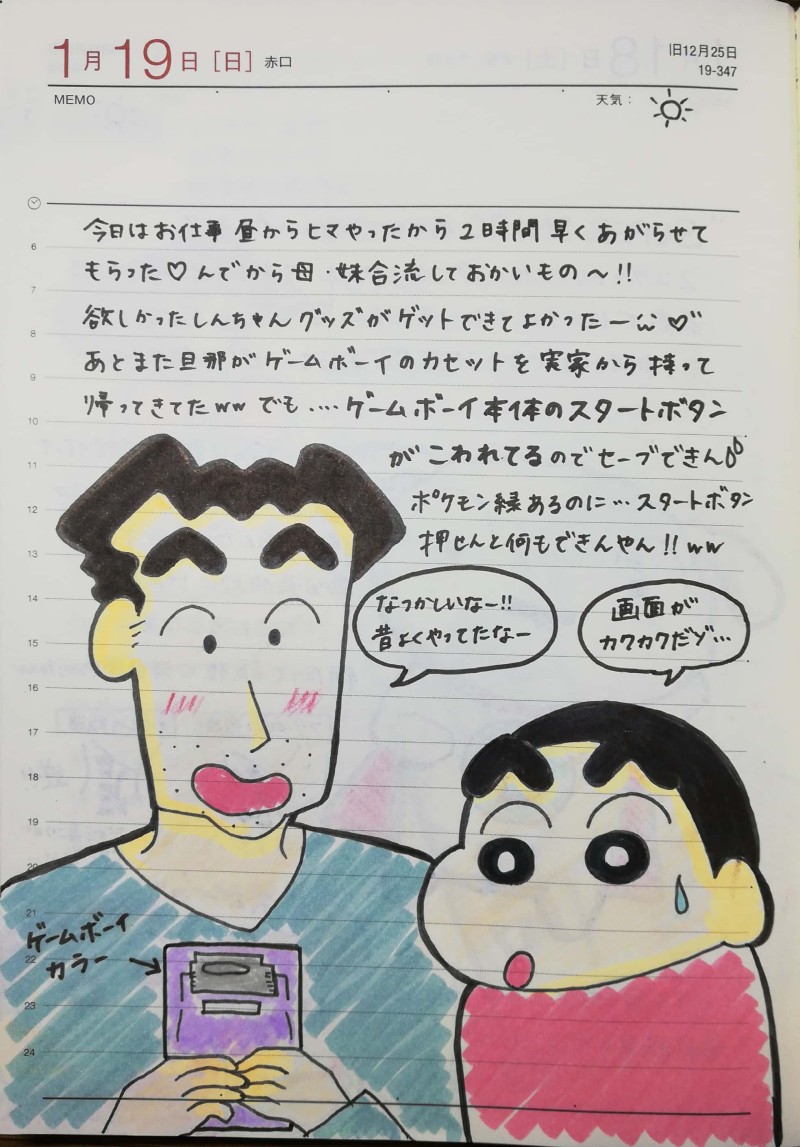 1月19日[日] 赤口
旧12月25日
19-347
MEMO
天気:
今日はお仕事 昼からヒマやったから 2時間 早く あがらせて
もらった♡んでから母・妹合流しておかいもの〜!!
欲しかったしんちゃんグッズがゲットできてよかったー♡
あとまた旦那がゲームボーイのカセットを実家から持って
帰ってきてたww でも・・・・ゲームボーイ本体のスタートボタン
がこわれてるのでセーブできん
ポケモン縁あるのに…スタートボタン
押せんと何もできんやん!!ww
なつかしいなー!!
昔よくやってたなー
画面が
カクカクだゾ…
ゲームボーイ
カラー
6
7
8
9
10
11
12
13
14
15
16
17
18
19
20
21
22
23
24